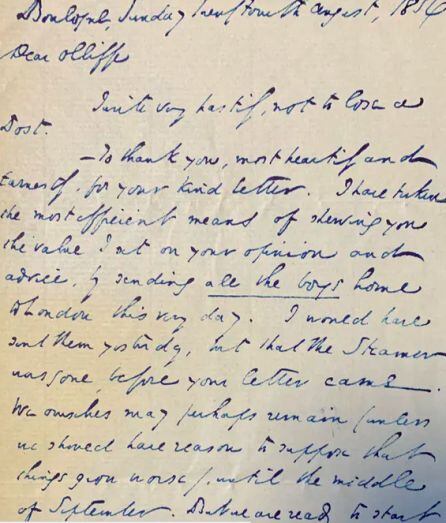 Boulogne, Sunday Twenty fourth August, 1856
Dear Olliffe
I write very hastily, not to lose a
Post.
—To thank you, most heartily and
earnestly, for your kind letter. I have taken
the most efficient means of shewing you
the value I set on your opinion and
advice, by sending all the boys home
to London this very day. I would have
sent them yesterday, but that the Steamer
was gone before your letter came.
We ourselves may perhaps remain (unless
we should have reason to suppose that
things grow worse) until the middle
of September. But we are ready to start